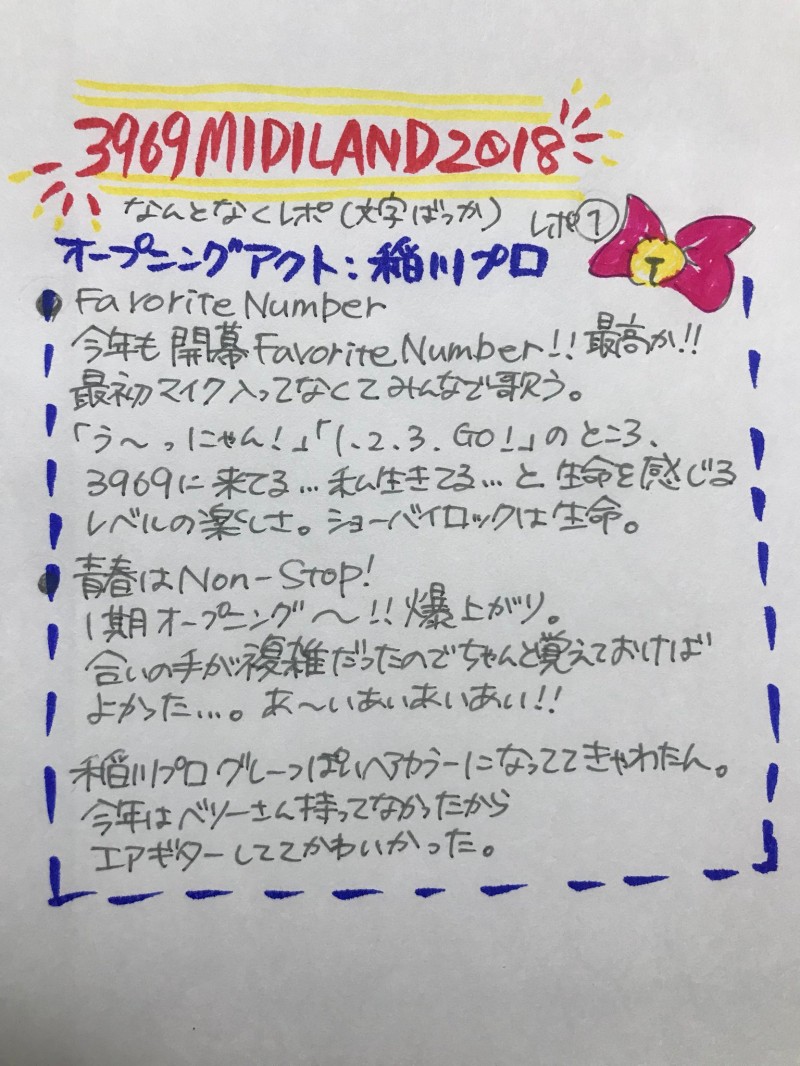 3969MIDILAND2018
なんとなくレポ(文字ばっか) レポ①
オープニングアクト:稲川プロ
●Favorite Number
今年も開幕Favorite Number!!最高か!!
最初マイク入ってなくてみんなで歌う。
「う〜っにゃん!」「1、2、3、GO!」のところ、
3969に来てる…私生きてる…と生命を感じる
レベルの楽しさ。ショーバイロックは生命。
●青春はNon-Stop!
1期オープニング〜!!爆上がり。
合いの手が複雑だったのでちゃんと覚えておけば
よかった…。あ〜いあいあいあい!!
稲川プログレーっぽいヘアカラーになっててきゃわたん。
今年はベツーさん持ってなかったから
エアギターしててかわいかった。